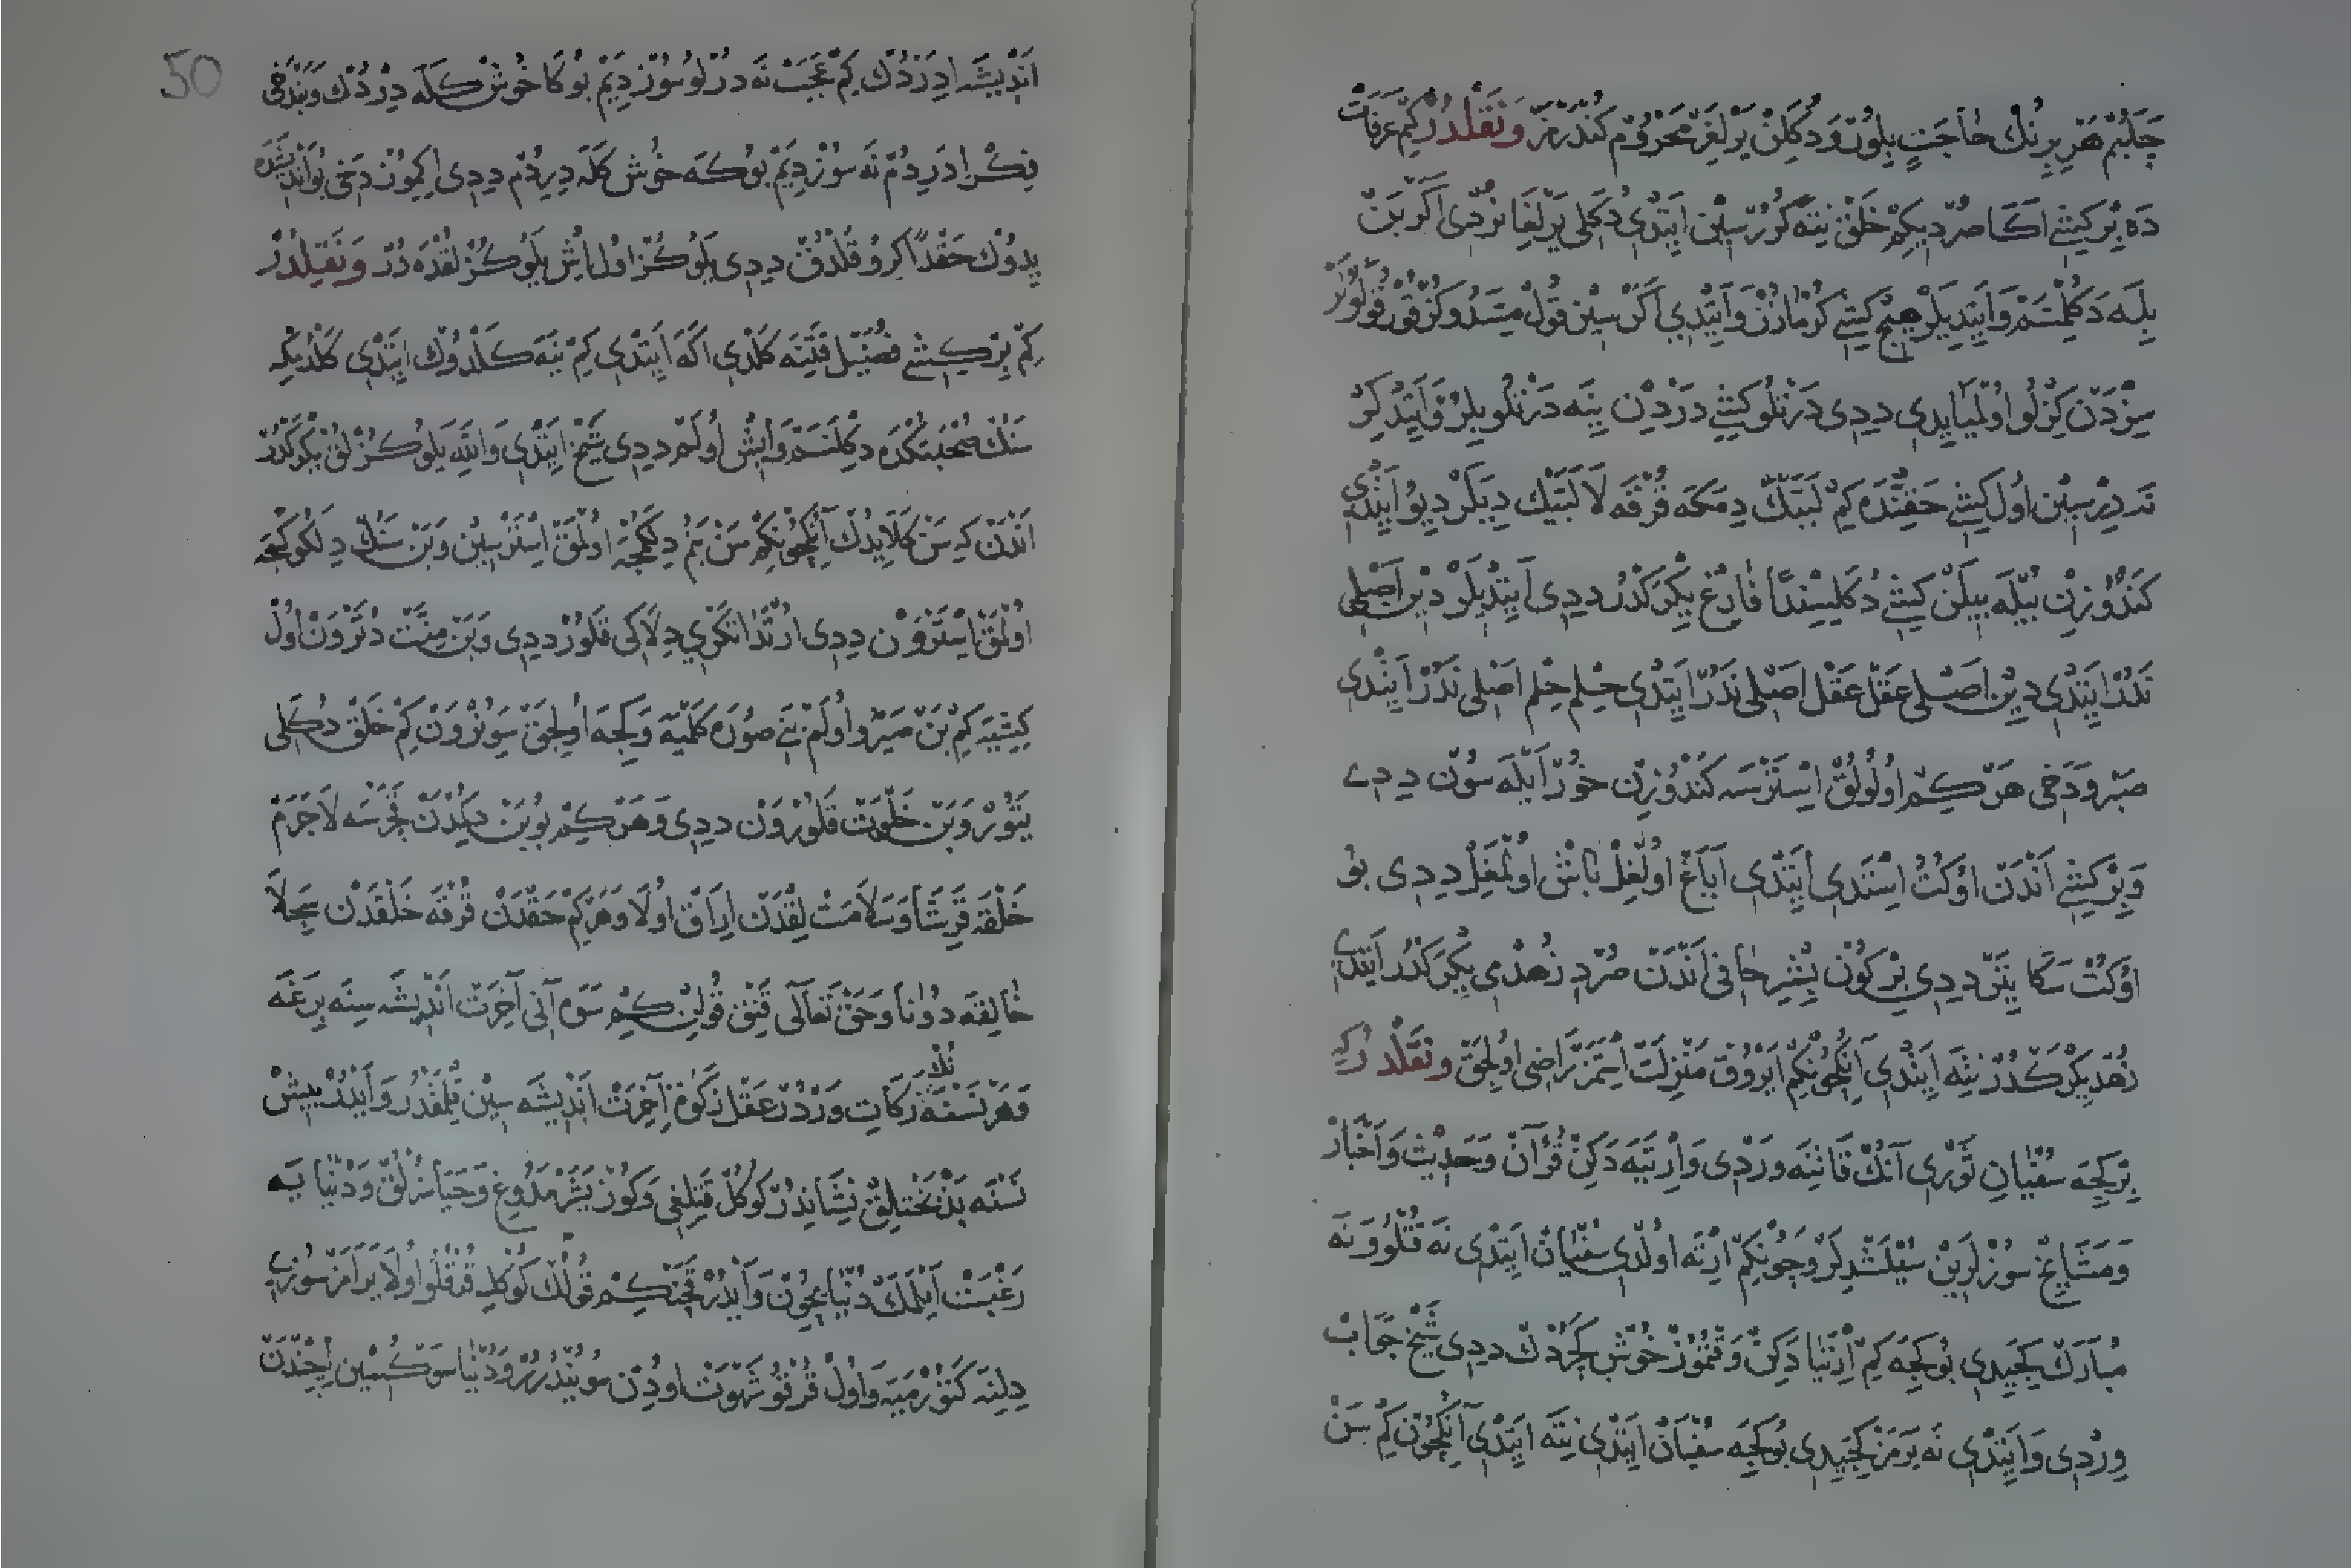 چَلَبُمْ هَرْ بِرِنُكْ حَاجَتِ بِلُورْ وَدُكَلِنْ يَرْلِغَرْ مَحْرُومْ كُنْدَرْمَزْ وَنَقْلْدُرْ كِمْ عَرَفَاتْ
دَه بِرْ كِيشِي اَكَا صُرْدِيكِمْ خَلْقِ نِتَه كُرُرْسِينْ اَيِتْدِي دُكَلِي يَرْلِغَانُرْدِي اَكَرْ بَنْ
بِلَه دَكُلْمِسَمْ وَاَيِتْدِيلَرْ هِيچْ كِيشِي كُرْمَازُزْ وَاَيِتْدِي اَكَرْ سِينْ قُولْ مِسَدُوكُزْ قُورْقُولُولَرْ
سِزْدَنْ كِزْلُو اُولْمَيَايِدِي دِدِي دَرْتْلُو كِيشِي دَرْدِنْ يِنَه دَرْتْلُو بِلِرْ وَاَيِتْدِلَرْ
نَه دِرْسِينْ اُولْ كِيشِي حَقِنْدَه كِمْ لَبَّيْكْ دِمَكَه قُرْقَه لَا لَبَّيْكْ دِيَكَرْ دِيُو اَيِتْدِي
كَنْدُوزِنْ بَيْلَه بِيلَنْ كِيشِي دُكَلِيسِنْدَا فَارِغْ يِكْرَكْدُرْ دِدِي اَيِتْدِيلَرْ دِينْ اَصْلِي
نَدُرْ اَيِتْدِي دِينْ اَصْلِي عَقْلْ عَقْلْ اَصْلِي نَدُرْ اَيِتْدِي حِلْمْ حِلْمْ اَصْلِي نَدُرْ اَيِتْدِي
صَبْرْ وَدَخِي هَرْ كِمْ اُولُولُقْ اِسْتَرْسَه كَنْدُوزِنْ خُورْ اَيْلَه سُونْ دِدِي
وَبِرْ كِيشِي اَنْدَنْ اُوكُتْ اِسْتَدِي اَيِتْدِي اَيَاغْ اُولْغِلْ بَاشْ اُولْمَغِلْ دِدِي بُو
اُوكُتْ سَكَا يِتَرْ دِدِي بِرْ كُونْ بِشْرِ حَافِي اَنْدَنْ صُرْدِ زُهْدْمِي يِكْرَكْدُرْ اَيِتْدِي
زُهْدْ يِكْرَكْدُرْ نِتَه اَيِتْدِي اَنِكْچُونْكِمْ اَيْرُوقْ مَنْزِلَتْ اِسْتَمَزْ رَاضِي اُولِجَقْ وَنَقْلْدُرْ كِه
بِرْ كِجَه سُفْيَانِ ثَوْرِي اَنُكْ قَاتِنَه وَرْدِي وَاِرْتَيَه دَكِنْ قُرْآنْ وَحَدِيثْ وَاَخْبَارْ
وَمَشَايِخْ سُوزْلَرِينْ سُيْلَشْدِلَرْ وَچُونْكِمْ اِرْتَه اُولْدِي سُفْيَانْ اَيِتْدِي نَه قُتْلُو وَنَه
مُبَارَكْ كِجَيِدِي بُوكِجَه كِمْ اِرْتَيَا دَكِنْ وَقْتُمُوزْ خُوشْ كِچُرْدُكْ دِدِي شَيْخْ جَوَابْ
وِرْدِي وَاَيِتْدِي نَه يَرَمَزْ كِجَيِدِي بُوكِجَه سُفْيَانْ اَيِتْدِي نِتَه اَيِتْدِي اَنِكْچُونْ كِمْ سَنْ
اَنْدِيشَه اِدَرْدُكْ كِمْ عَجَبْ نَه دُرْلُو سُوزْ دِيَمْ بُوكَا خُوشْ كَلَه دِرْدُكْ وَبَنْدَخِي
فِكْرْ اِدَرِدُمْ نَه سُوزْ دِيَمْ بُوكَه خُوشْ كَلَه دِيرْدُمْ دِدِي اِكِمُوزْ دَخِي بُو اَنْدِيشَدَه
يِدُوكْ حَقْدَا كِرُو قَلْدُقْ دِدِي يَلُوكُزْ اُولْ اِشْ يَلُوكُزْلُقْدَه دُرْ وَنَقْلْدُرْ
كِمْ بِرْ كِيشِي فُضَيْلْ قَتِنَه كَلْدِي اَكَه اَيِتْدِي كِمْ نِيَه كَلْدُوكْ اَيِتْدِي كَلْدُمْكِه
سَنُكْ صُحْبَتُكْدَه دِكْلَنَمْ وَاِيشْ اُولَمْ دِدِي شَيْخْ اَيِتْدِي وَاللّٰهِ يَلُوكُزْلُقْ يِكْرَكْدُرْ
اَنْدَنْ كِه سَنْ كَلَايِدُكْ اَنِكْچُونْكِمْ سَنْ بَنُمْ دِلَكُمْجَه اُولْمَقْ اِسْتَرْسِينْ وَبَنْ سَنُكْ دِلَكُوكْجَه
اُولْمَقْ اِسْتَرْوَنْ دِدِي اُرْتَدَا تَكْرِي دِلَاكِي قَلُورْ دِدِي وَبَنْ مِنَّتْ دُتَرْوَنْ اُولْ
كِيشِيَه كِمْ بَنْ صَيْرُو اُولَمْ بَنِي صُورَه كَلْمَيَه وَكِجَه اُولِجَقْ سَوُنُرْوَنْ كِمْ خَلْقْ دُكَلِي
يَتُورْ وَبَنْ خَلْوَتْ قَلُورْوَنْ دِدِي وَهَرْ كِمْ بُو بَنْدِيكُمْدَنْ كِچَرْسَه لَاجَرَمْ
خَلْقَه قَرِشَا وَسَلَامَتْلِقْدَنْ اِرَاقْ اُولَا وَهَرْكِمْ حَقْدَنْ قُرْقَه خَلْقْدَنْ سِچِلَا
خَالِقَه دُونَا وَحَقْ تَعَالَى قَنْقِ قُولِنْ كِمْ سَوَه اَنِي آخِرَتْ اَنْدِيشَه سِنَه يِرَغَه
وَهَرْ نَسْنَه نُكْ زَكَاتِ وَرْدُرْ عَقْلْ زَكَوتِ آخِرَتْ اَنْدِيشَه سِينْ يِلْمَقْدُرْ وَاَيِدُرْ بِيشْ
نَسْنَه بَدْبَخْتْلِقْ نِشَانِدُرْ كُوكُلْ قَتِلِغِي وَكُوزْ يَشَرْمَدُوغِ وَحَيَاسُزْلُقْ وَدُنْيَا يَه
رَغْبَتْ اَيْلَمَكْ دُنْيَايِچُونْ وَاَيْدُرْ قَچَنْكِمْ قُولُكْ كُوكُلِ قُرْقُلُو اُولَا يَرَامَزْ سُوزِي
دِلِنَه كَتُورْمَيَه وَاُولْ قُرْقُو شَهْوَتْ اُودِنْ سُويُنْدُرُرْ وَدُنْيَا سَوْكُسِينْ اِچِنْدَنْ
50